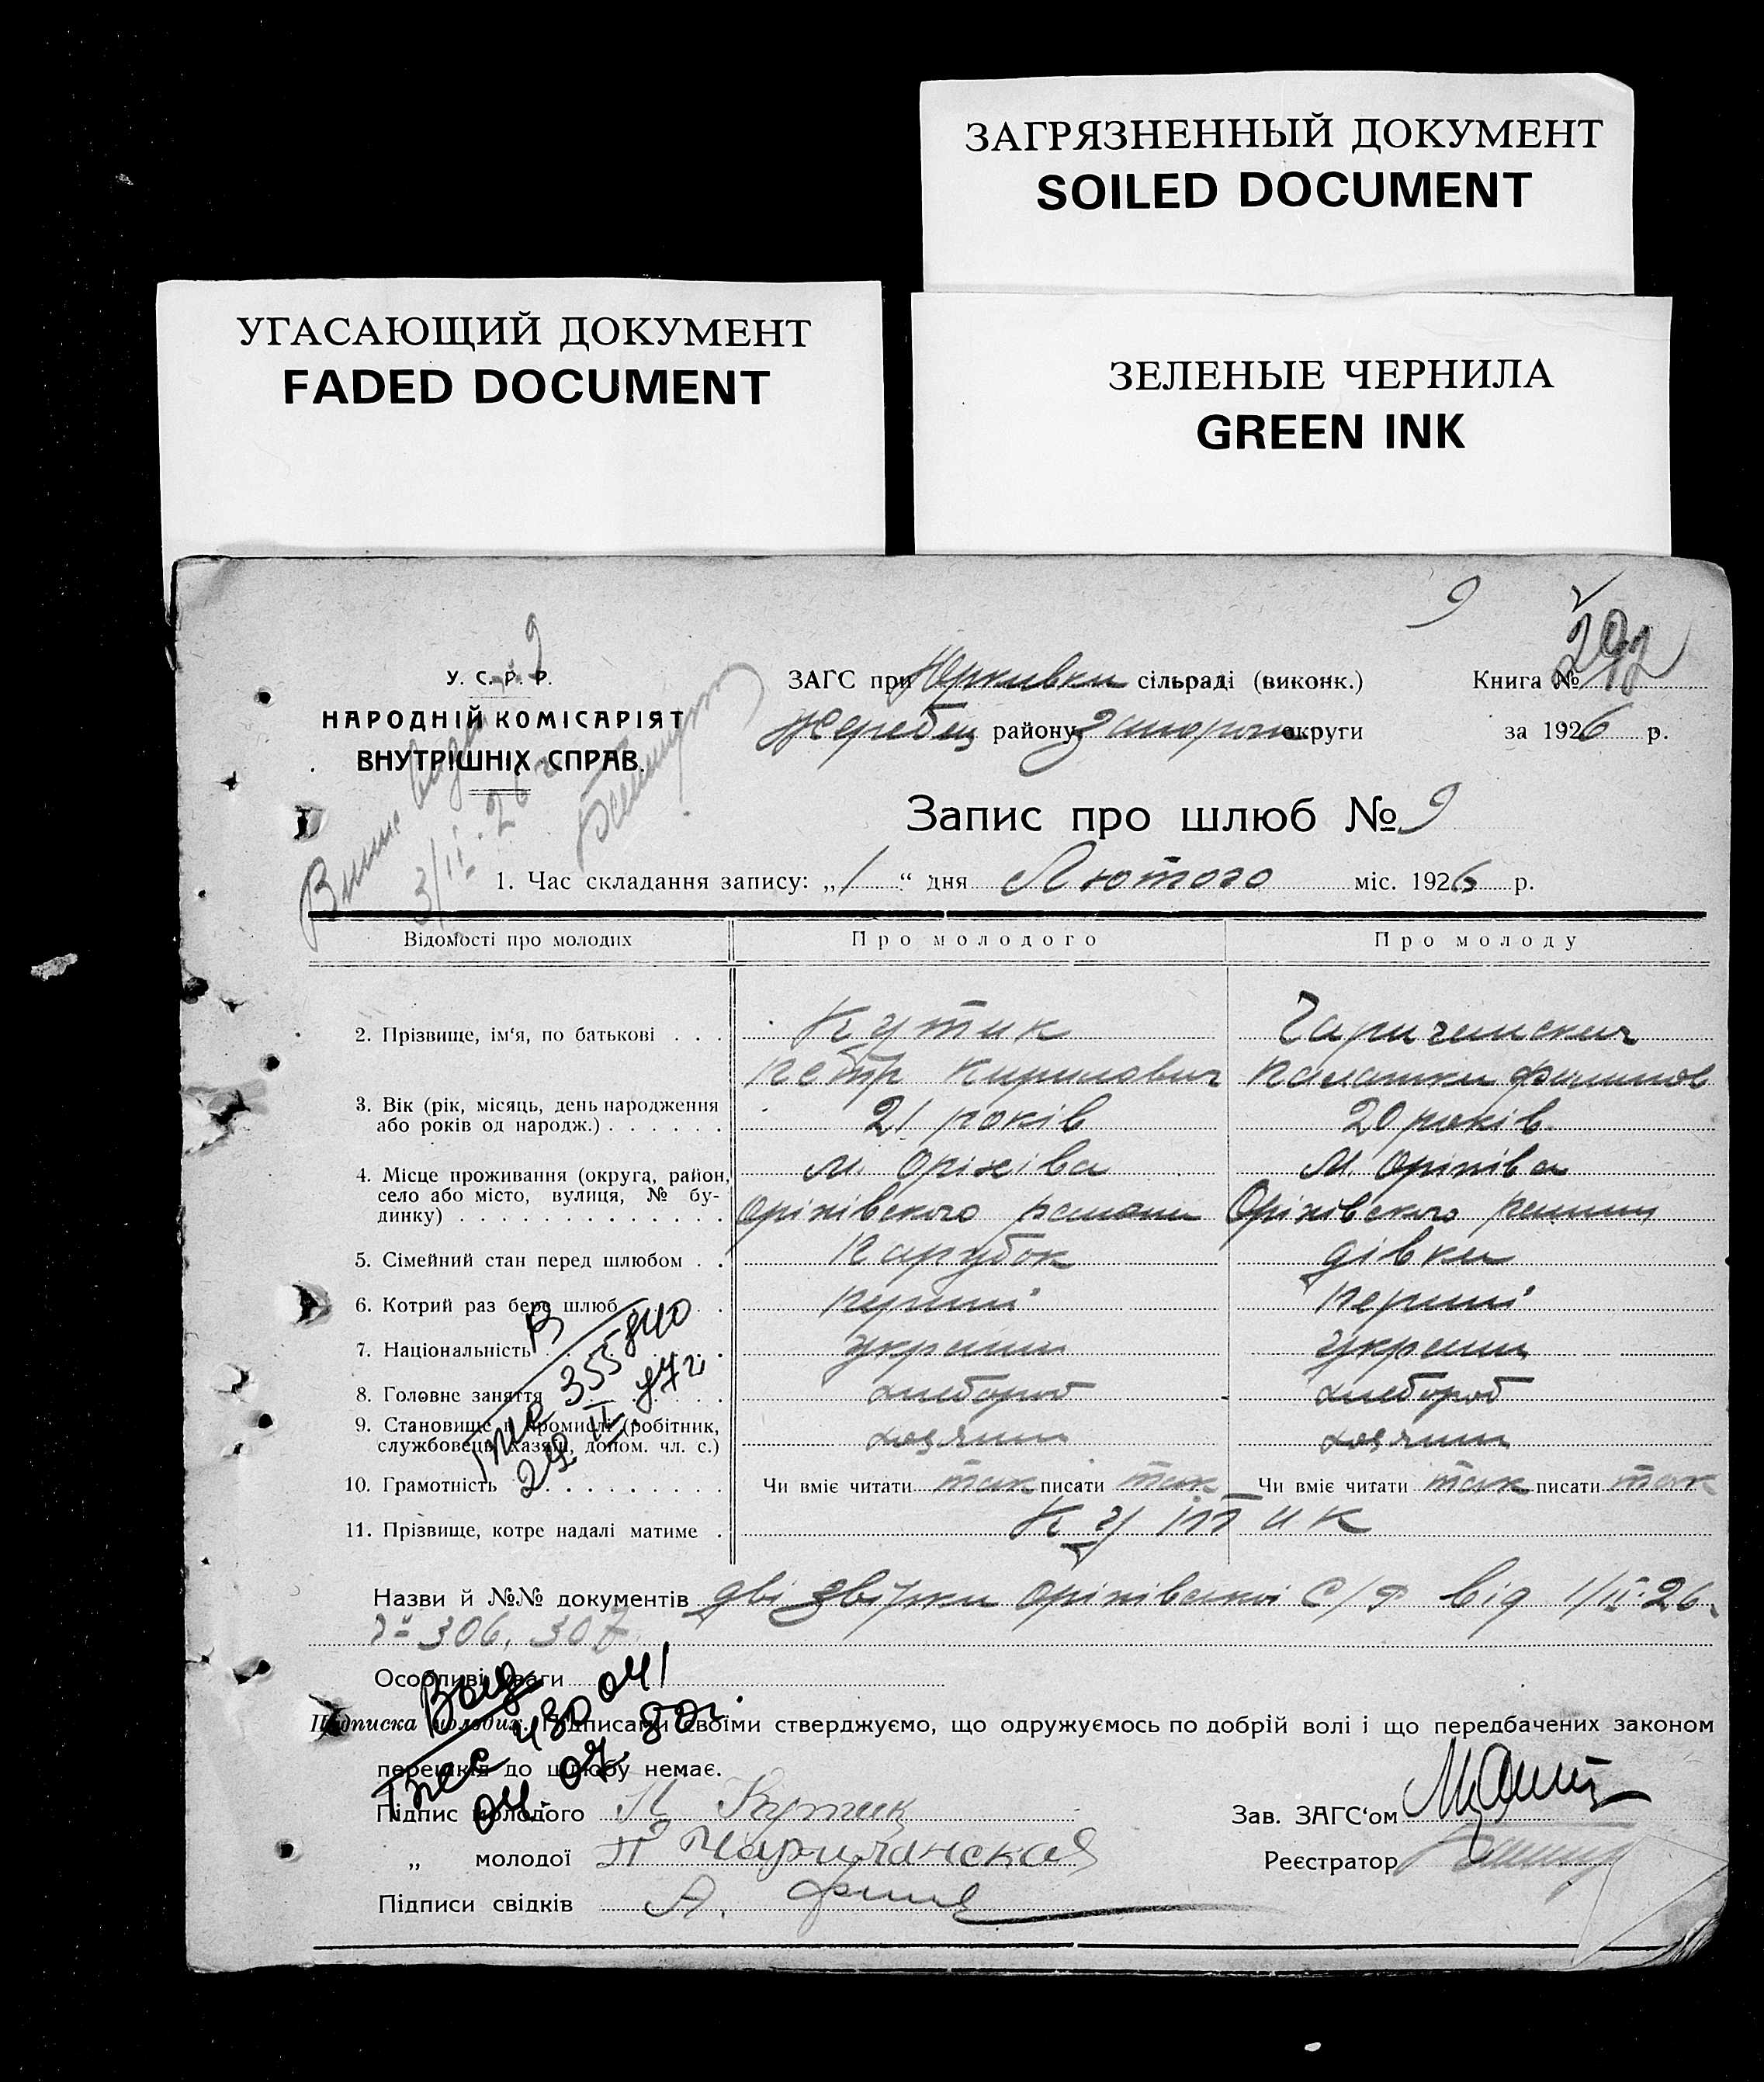 ЗАГРЯЗНЕННЫЙ ДОКУМЕНТ
SOILED DOCUMENT
УГАСАЮЩИЙ ДОКУМЕНТ
FADED DOCUMENT
ЗЕЛЕНЫЕ ЧЕРНИЛА
GREEN INK
9
9
292
У. С. Р. Р.
НАРОДНІЙ КОМІСАРІЯТ
ВНУТРІШНІХ СПРАВ.
3/II-26
ЗАГС при Юрківки сільраді (виконк.)
Книга №
Жеребец району Запорож округи
за 1926 р.
Запис про шлюб № 9
1. Час складання запису: „1“ дня Лютого міс. 1926 р.
Відомості про молодих Про молодого Про молоду
2. Прізвище, ім‘я, по батькові . . . Кутик
Петр Кирилович
3. Вік (рік, місяць, день народження або років од народж.) . . . . . . 21 років 20 років
4. Місце проживання (округа, район, село або місто, вулиця, № будинку) . . . . . . . . . . . . . М. Оріхіва М. Оріхіва
Оріхівского Оріхівского
5. Сімейний стан перед шлюбом . . Парубок дівка
6. Котрий раз бере шлюб перший перший
7. Національність украин украин
8. Головне заняття хлебороб хлебороб
9. Становище в промислі (робітник, службовець, хазяїн, допом. чл. с.) хозяин хозяин
10. Грамотність . . . . . . . . . Чи вміє читати так писати так Чи вміє читати так писати так
11. Прізвище, котре надалі матиме . Кутик
В
355840
29 II 47г
Назви й №№ документів дві звірки Оріхівскої С/Р від 1/II-26
№ 306, 307
Особливі уваги
430041
04.07.80г.
Підписка молодих. Підписами своїми стверджуємо, що одружуємось по добрій волі і що передбачених законом
перешкід до шлюбу немає.
Підпис молодого П Кутик
Зав. ЗАГС‘ом
„ молодої П Чаричанская
Реєстратор
Підписи свідків А.